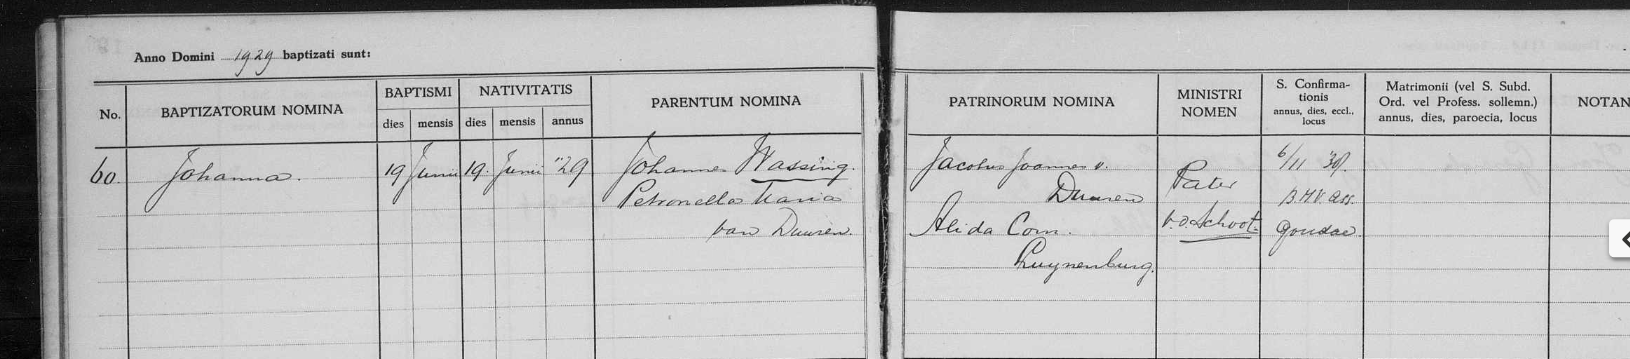 Anno Domini 1929 baptizati sunt:
No.
BAPTIZATORUM NOMINA
BAPTISMI
dies
mensis
NATIVITATIS
dies
mensis
annus
PARENTUM NOMINA
PATRINORUM NOMINA
MINISTRI
NOMEN
S. Confirma-
tionis
annus, dies, eccl.,
locus
Matrimonii (vel S. Subd.
Ord. vel Profess. sollemn.)
annus, dies, paroecia, locus
NOTAN
60.
Johanna.
19
Junii
19.
Junii
"29
Johannes Wassing.
Petronella Maria
van Duuren.
Jacobus Joannes v.
Duuren
Alida Corn.
Luynenburg.
Pater
v. d. Schoot.
6/11
B.M.V. ass.
Goudae.